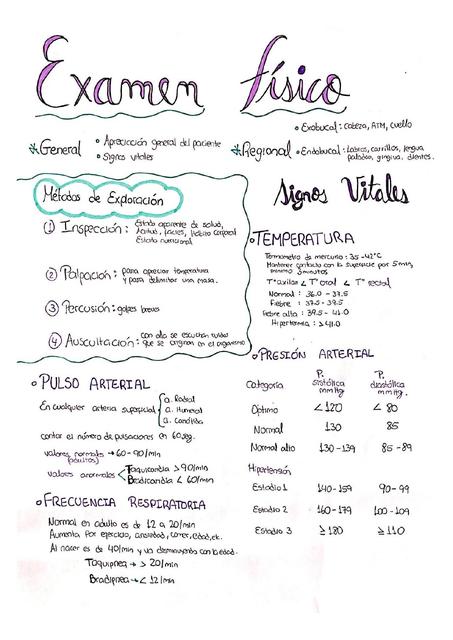 Examen físico
*General
• Apreciación general del paciente
• Signos vitales
*Regional
• Exobucal: cabeza, ATM, cuello
• Endobucal: labios, carrillos, lengua
paladar, gingiva, dientes.
Métodos de Exploración
① Inspección: Estado aparente de salud,
actitud, facies, hábito corporal
Estado nutricional
② Palpación: para apreciar temperatura
y para delimitar una masa.
③ Percusión: golpes breves
④ Auscultación: con ella se escuchan ruidos
que se originan en el organismo
Signos Vitales
• TEMPERATURA
Termómetro de mercurio: 35-42°C
Mantener contacto con la superficie por 5 min,
mínimo 3 minutos
T° axilar < T° oral < T° rectal
Normal: 36.0 - 37.5
Fiebre: 37.5 - 39.5
Fiebre alta: 39.5 - 41.0
Hipertermia: >41.0
• PRESIÓN ARTERIAL
Categoría
P. sistólica mmHg.
P. diastólica mmHg.
Óptimo < 120 < 80
Normal 130 85
Normal alto 130-139 85-89
Hipertensión
Estadio 1 140-159 90-99
Estadio 2 160-179 100-109
Estadio 3 ≥180 ≥110
• PULSO ARTERIAL
En cualquier arteria superficial
a. Radial
a. Humeral
a. Carótida
contar el número de pulsaciones en 60 seg.
valores normales → 60-90/min
(adultos)
valores anormales
Taquicardia >90/min
Bradicardia < 60/min
• FRECUENCIA RESPIRATORIA
Normal en adulto es de 12 a 20/min
Aumenta por ejercicio, ansiedad, comer, edad, etc.
Al nacer es de 40/min y va disminuyendo con la edad.
Taquipnea → > 20/min
Bradipnea → < 12/min